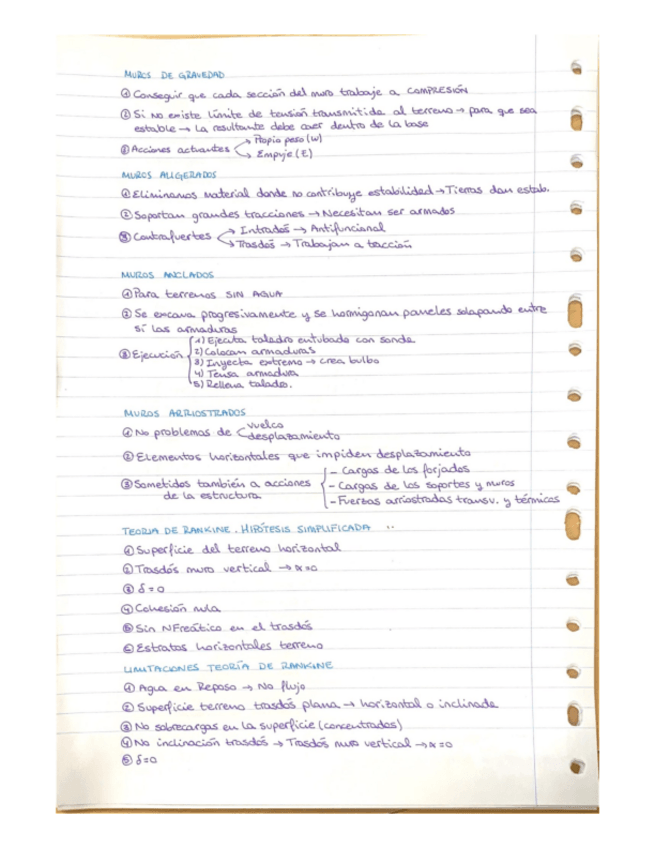 MUROS DE GRAVEDAD
① Conseguir que cada sección del muro trabaje a COMPRESIÓN
② Si no existe límite de tensión transmitida al terreno → para que sea
estable → La resultante debe caer dentro de la base
③ Acciones actuantes → Propio peso (W)
→ Empuje (E)
MUROS ALIGERADOS
① Eliminamos material donde no contribuye estabilidad → Tierras dan estab.
② Soportan grandes tracciones → Necesitan ser armados
③ Contrafuertes → Intradós → Antifuncional
→ Trasdós → Trabajan a tracción
MUROS ANCLADOS
① Para terrenos SIN AGUA
② Se excava progresivamente y se hormigonan paneles solapando entre
sí las armaduras
1) Ejecuta taladro entubado con sonda
③ Ejecución 2) Colocan armaduras
3) Inyecta extremo → crea bulbo
4) Tensa armadura
5) Rellena taladro.
MUROS ARRIOSTRADOS
① No problemas de vuelco
desplazamiento
② Elementos horizontales que impiden desplazamiento
③ Sometidos también a acciones - Cargas de los forjados
de la estructura - Cargas de los soportes y muros
- Fuerzas arriostradas transv. y térmicas
TEORIA DE RANKINE. HIPÓTESIS SIMPLIFICADA
① Superficie del terreno horizontal
② Trasdós muro vertical → α=0
③ δ=0
④ Cohesión nula
⑤ Sin NFreático en el trasdós
⑥ Estratos horizontales terreno
LIMITACIONES TEORÍA DE RANKINE
① Agua en Reposo → No flujo
② Superficie terreno trasdós plana → horizontal o inclinada
③ No sobrecargas en la superficie (concentradas)
④ No inclinación trasdós → Trasdós muro vertical → α=0
⑤ δ=0